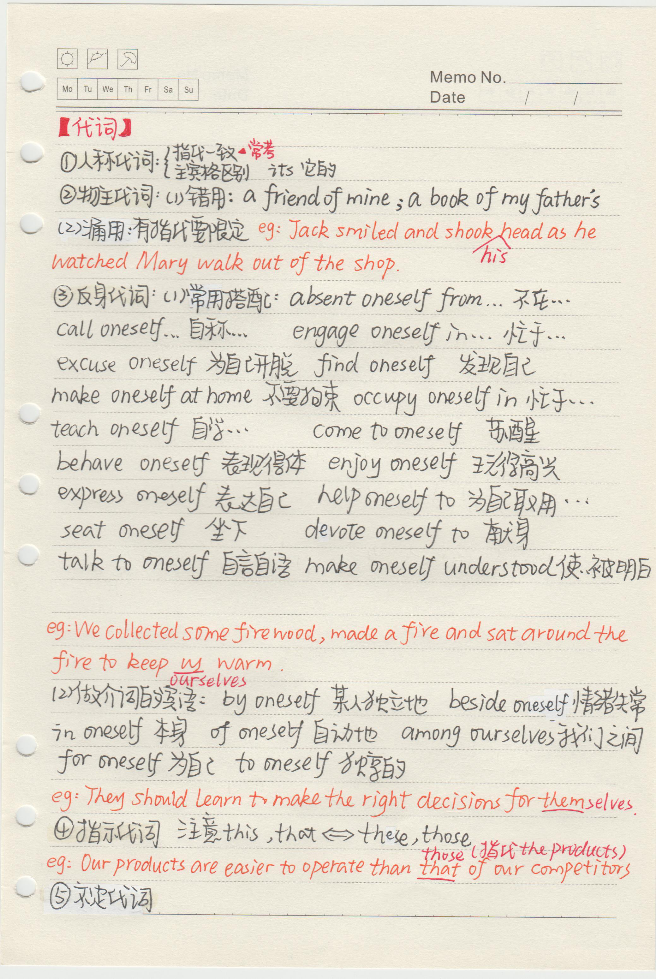 Memo No.
Mo Tu We Th Fr Sa Su
Date / /
【代词】
①人称代词:{指代一致→常考
主宾格区别 its 它的
②物主代词:(1)错用: a friend of mine; a book of my father's
(2)漏用:有指代要限定 eg: Jack smiled and shook head as he
his
watched Mary walk out of the shop.
③反身代词:(1)常用搭配: absent oneself from... 不在...
call oneself... 自称... engage oneself in... 忙于...
excuse oneself 为自己开脱 find oneself 发现自己
make oneself at home 不要拘束 occupy oneself in 忙于...
teach oneself 自学... come to oneself 苏醒
behave oneself 表现得体 enjoy oneself 玩得高兴
express oneself 表达自己 help oneself to 为自己取用...
seat oneself 坐下 devote oneself to 献身
talk to oneself 自言自语 make oneself understood 使.被明白
eg: We collected some firewood, made a fire and sat around the
fire to keep us warm.
ourselves
(2)做介词的宾语: by oneself 某人独立地 beside oneself 情绪失常
in oneself 本身 of oneself 自动地 among ourselves 我们之间
for oneself 为自己 to oneself 独享的
eg: They should learn to make the right decisions for themselves.
④指示代词 注意 this, that ⇔ these, those
those (指代 the products)
eg: Our products are easier to operate than that of our competitors
⑤不定代词